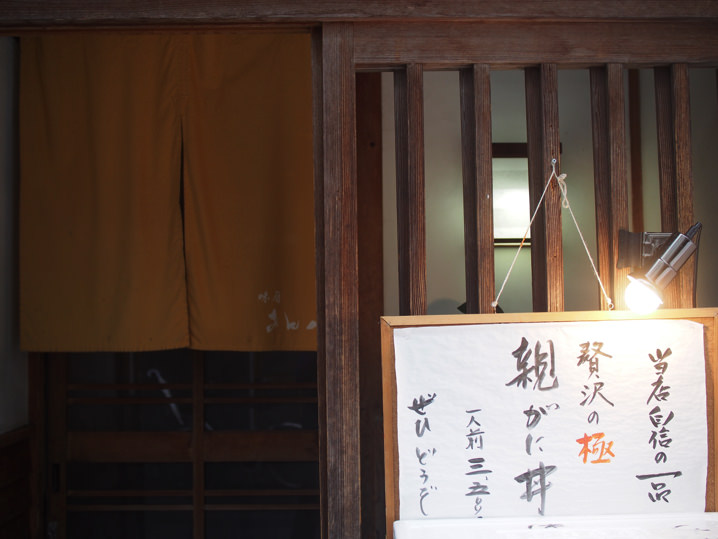 当店自信の一品
贅沢の極
親がに丼
一人前 三、五〇〇
ぜひどうぞ